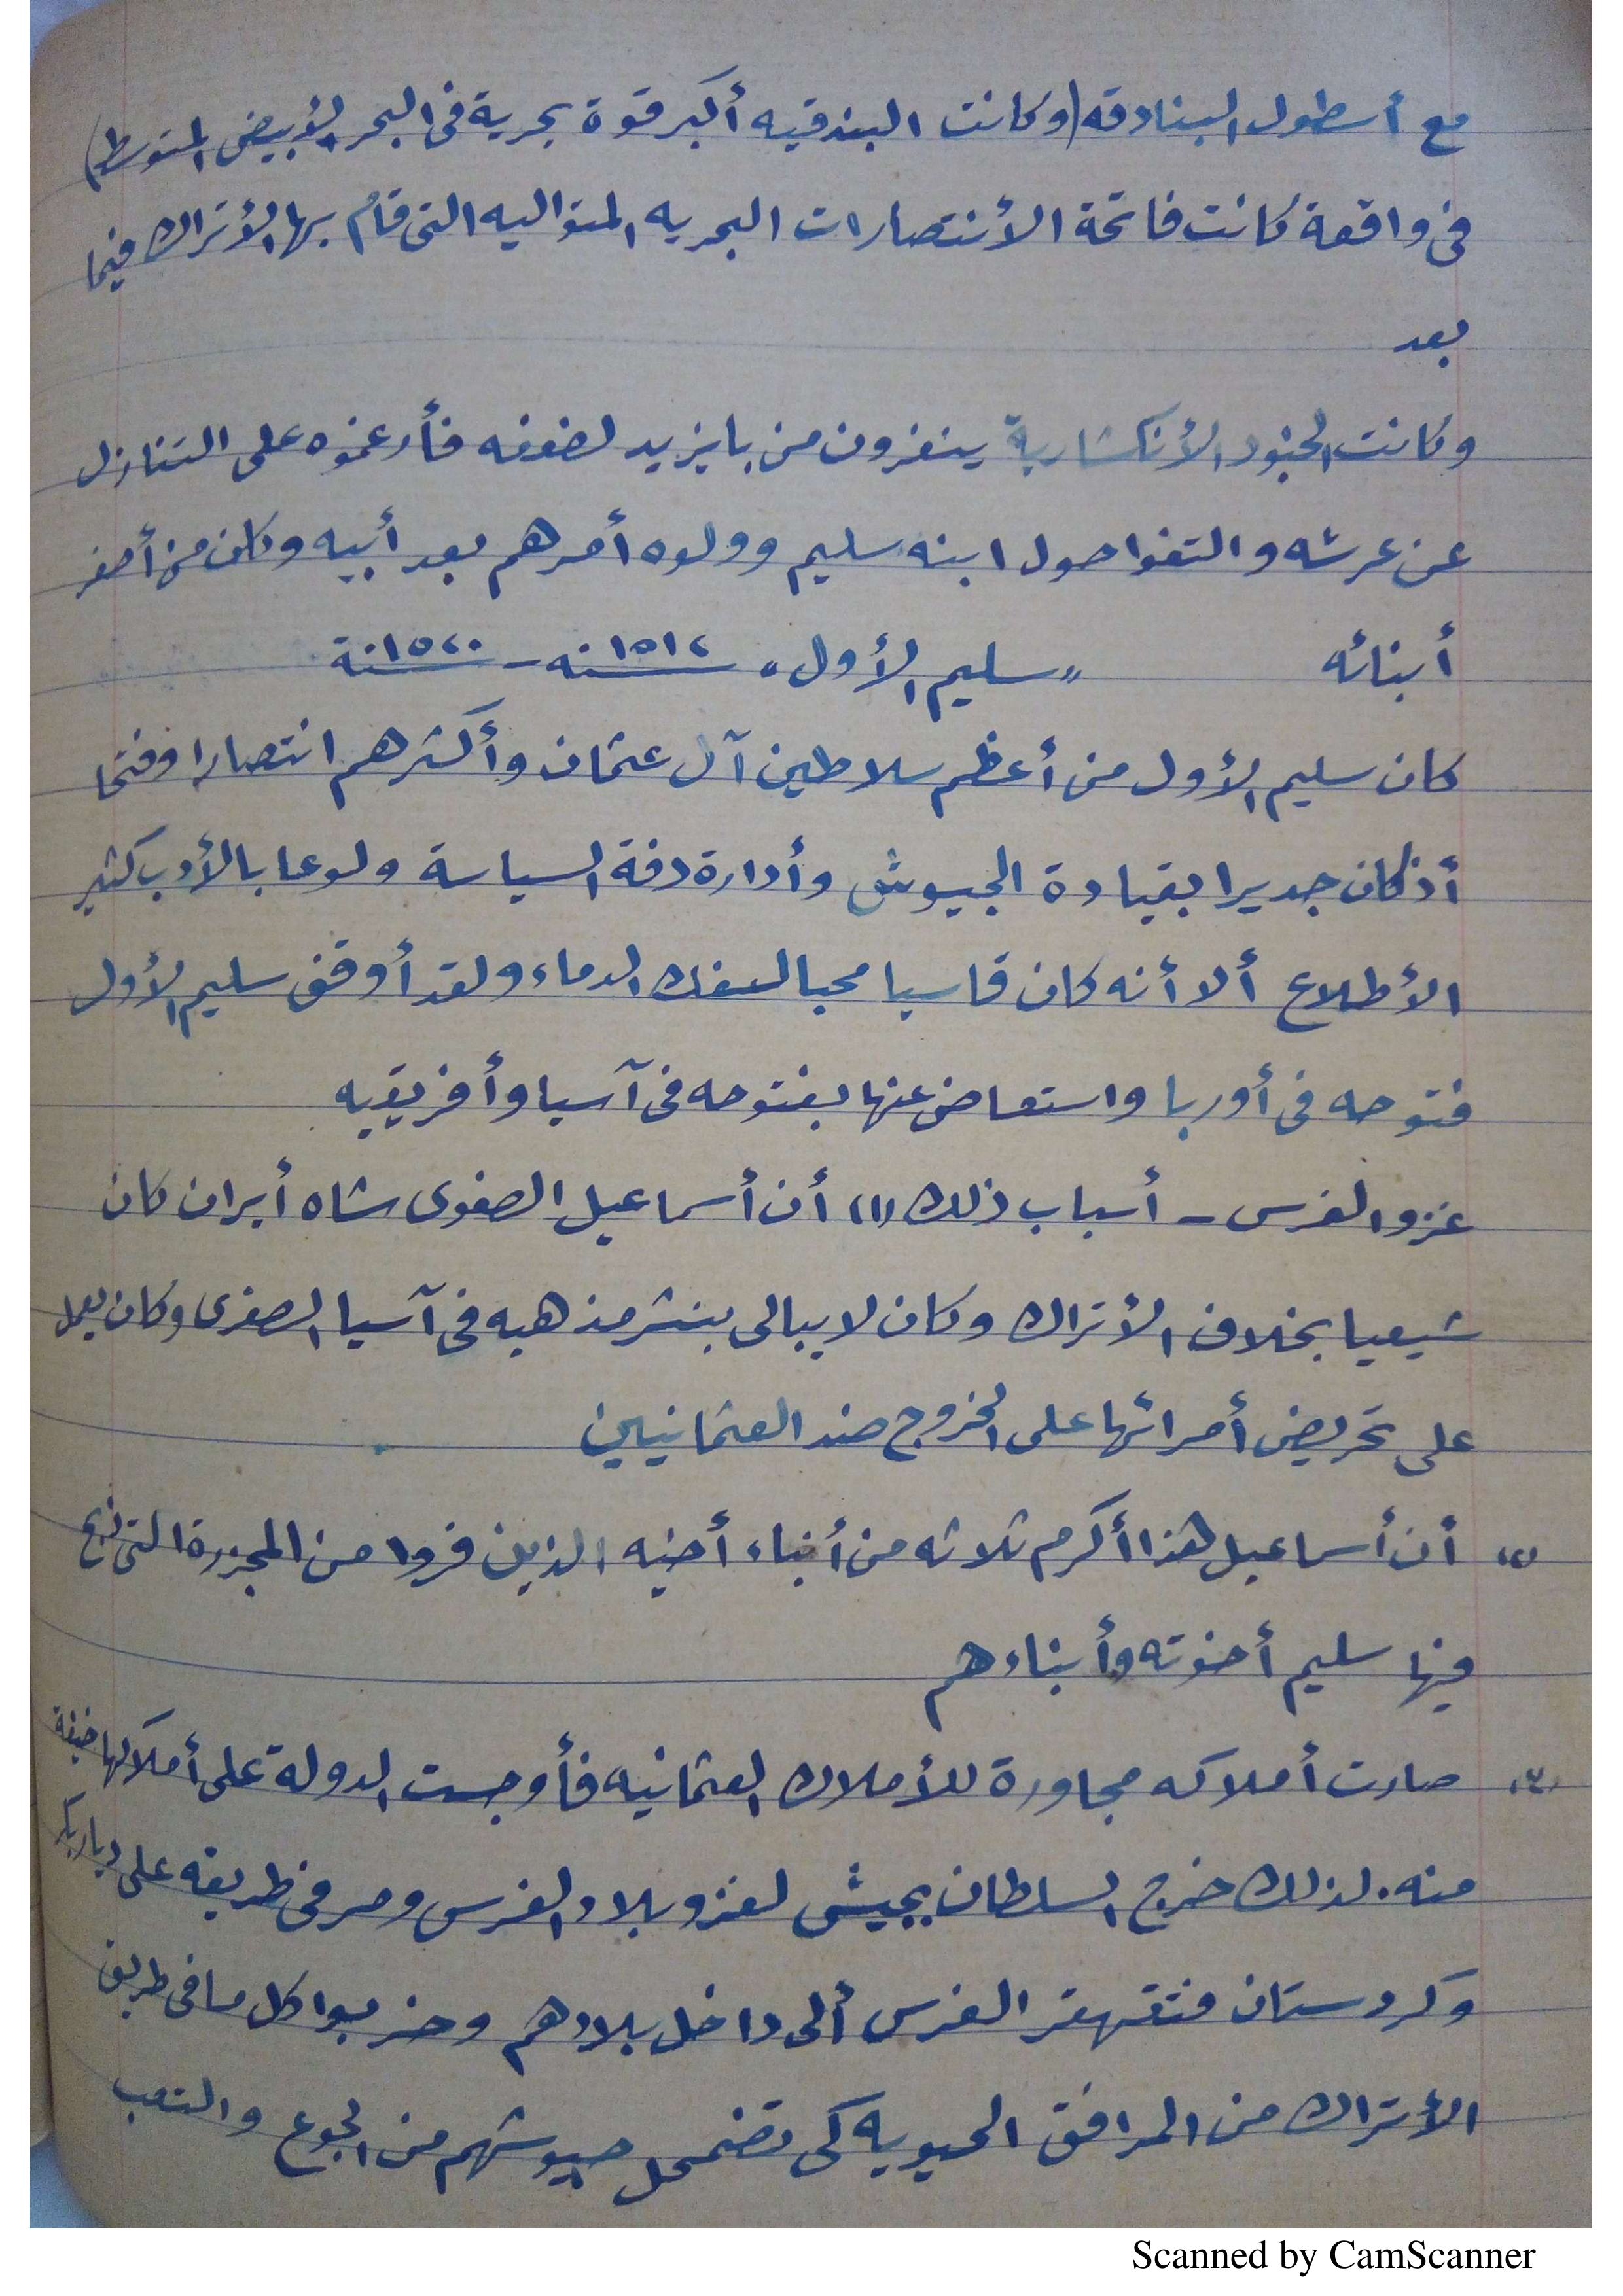 مع أسطول البنادقه (وكانت البندقيه أكبر قوة بحرية فى البحر الأبيض المتوسط)
فى واقعة كانت فاتحة الأنتصارات البحريه المتواليه التى قام بها الأتراك فيما
بعد
وكانت الجنود الأنكشارية ينفرون من بايزيد لضعفه فأرغموه على التنازل
عن عرشه والتفوا حول ابنه سليم وولوه أمرهم بعد أبيه وكان من أصغر
أبنائه « سليم الأول » ١٥١٢سنه - ١٥٢٠سنة
كان سليم الأول من أعظم سلاطين آل عثمان وأكثرهم انتصارا وفتحا
أذ كان جديرا بقيادة الجيوش وأدارة دفة السياسة ولوعا بالأدب كثير
الأطلاع ألا أنه كان قاسيا محبا لسفك الدماء ولقد أوقف سليم الأول
فتوحه فى أوربا واستعاض عنها بفتوحه فى آسيا وأفريقيه
غزو الفرس - أسباب ذلك (١) أن أسماعيل الصفوى شاه أيران كان
شيعيا بخلاف الأتراك وكان لا يبالى بنشر مذهبه فى آسيا الصغرى وكان يعمل
على تحريض أمرائها على الخروج ضد العثمانيين
(٢) أن أسماعيل هذا أكرم ثلاثه من أبناء أخيه الذين فروا من المجزرة التى ذبح
فيها سليم أخوته وأبناءهم
(٣) صارت أملاكه مجاورة للأملاك العثمانيه فأوجست الدولة على أملاكها خيفة
منه. لذلك خرج السلطان بجيش لغزو بلاد الفرس ومر فى طريقه على ديار بكر
وكردستان فتقهقر الفرس ألى داخل بلادهم وخربوا كل ما فى طريق
الأتراك من المرافق الحيويه كى تضمحل جيوشهم من الجوع والتعب
Scanned by CamScanner